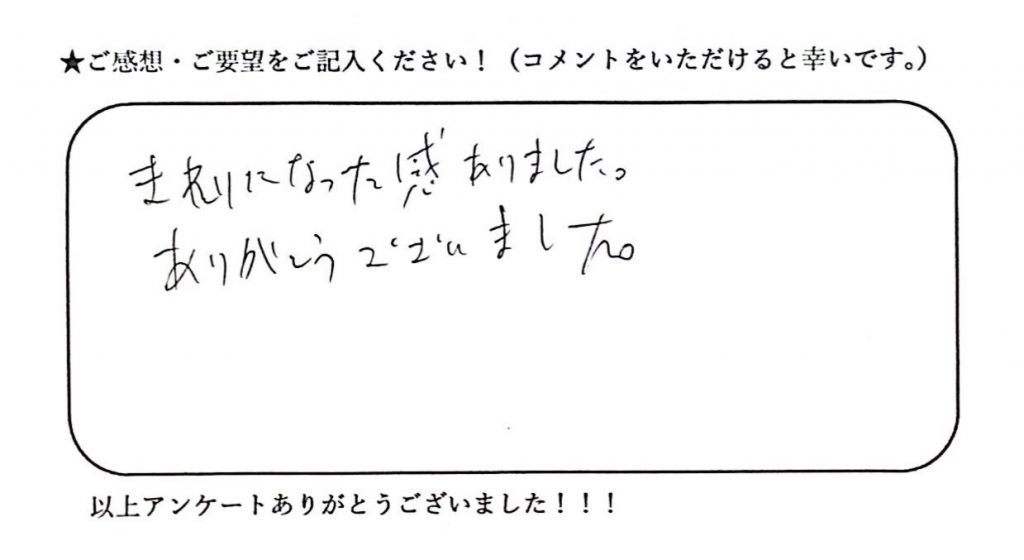 ★ご感想・ご要望をご記入ください！（コメントをいただけると幸いです。）
きれいになった感ありました。
ありがとうございました。
以上アンケートありがとうございました！！！